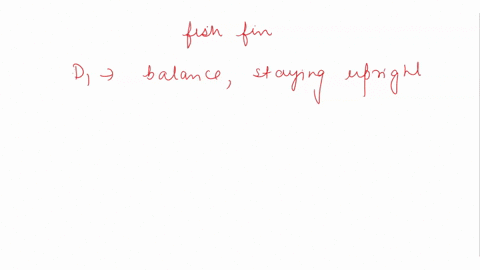 fish fin
D₁ → balance, staying upright